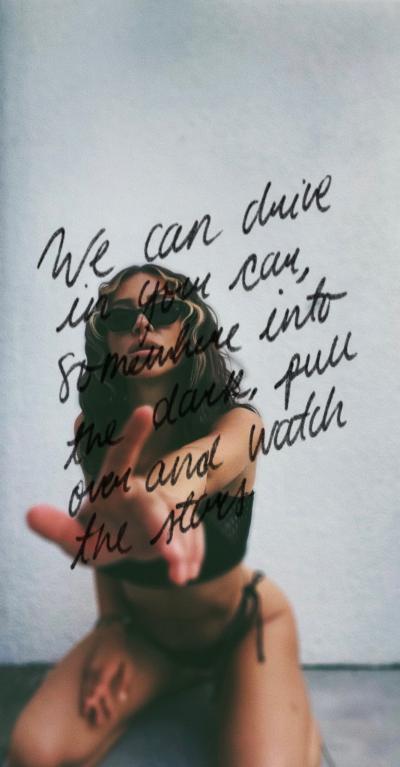 We can drive
in your car,
somewhere into
the dark, pull
over and watch
the stars.